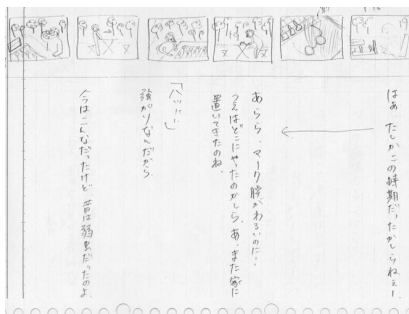 はあ、たしかこの時期だったかしらねぇー
あらら、マーク腕がわるいのに…
つえはどこにやったのかしら、あ、また家に
置いてきたのね
「ハッ!!」
強がりなんだから
今はこんなだったけど昔は弱虫だったのよ